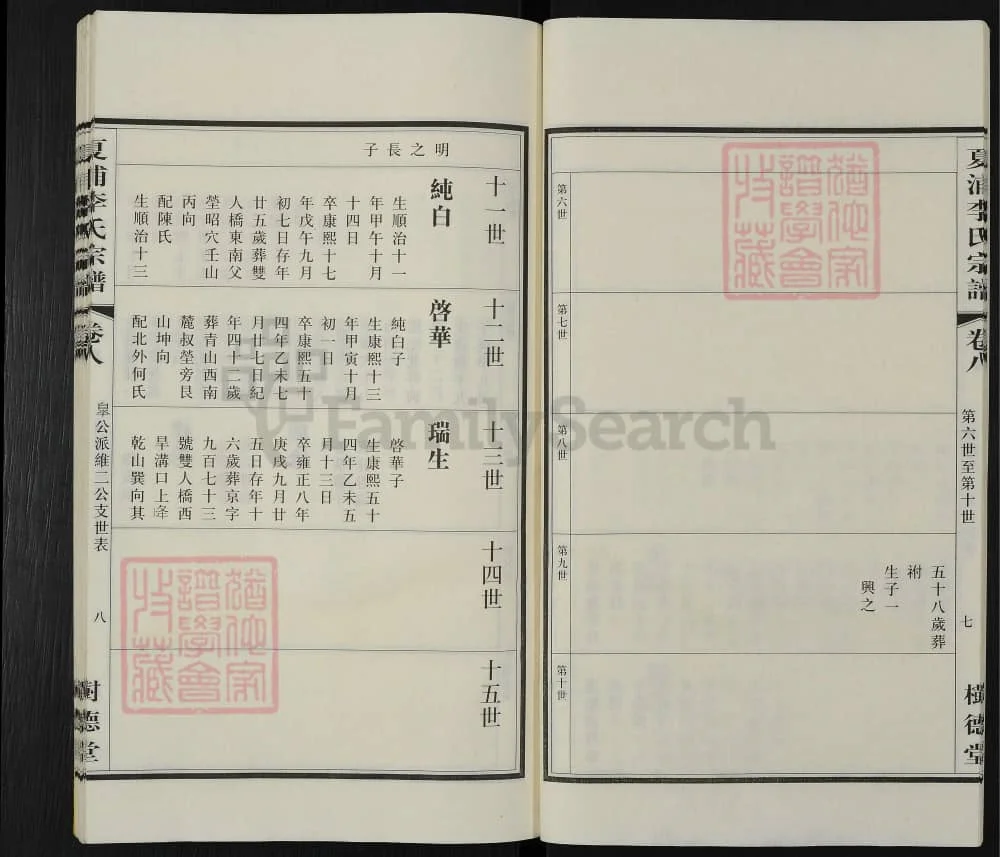 夏浦李氏宗譜
卷八
第六世至第十世
七
樹德堂
第六世
第七世
第八世
第九世
五十八歲葬
祔
生子一
興之
第十世
十一世
明之長子
純白
生順治十一
年甲午十月
十四日
卒康熙十七
年戊午九月
初七日存年
廿五歲葬雙
人橋東南父
塋昭穴壬山
丙向
配陳氏
生順治十三
十二世
啓華
純白子
生康熙十三
年甲寅十月
初一日
卒康熙五十
四年乙未七
月廿七日紀
年四十二歲
葬青山西南
麓叔塋旁艮
山坤向
配北外何氏
十三世
瑞生
啓華子
生康熙五十
四年乙未五
月十三日
卒雍正八年
庚戌九月廿
五日存年十
六歲葬京字
九百七十三
號雙人橋西
旱溝口上夆
乾山巽向其
十四世
十五世
夏浦李氏宗譜
卷八
皐公派維二公支世表
八
樹德堂
FamilySearch